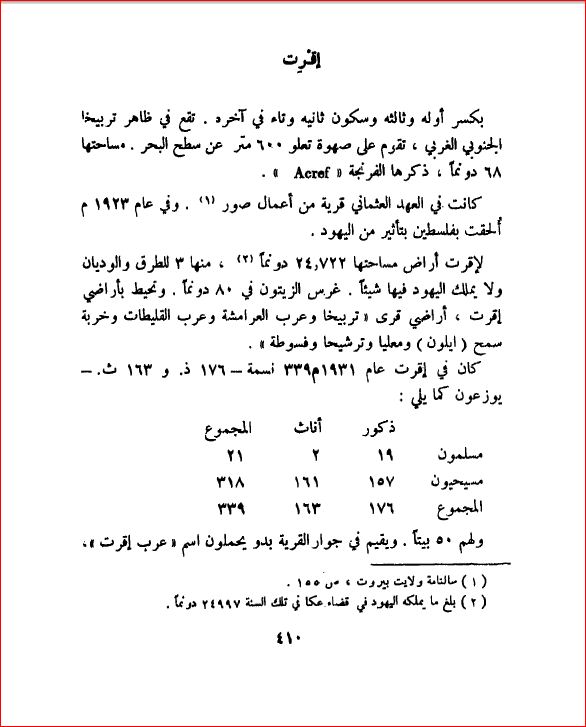 إقرت
بكسر أوله وثالثه وسكون ثانيه وتاء في آخره . تقع في ظاهر تربيخا
الجنوبي الغربي ، تقوم على صهوة تعلو ٦٠٠ متر عن سطح البحر . مساحتها
٦٨ دونماً ، ذكرها الفرنجة « Acref » .
كانت في العهد العثماني قرية من أعمال صور (١) . وفي عام ١٩٢٣ م
أُلحقت بفلسطين بتأثير من اليهود .
لإقرت أراض مساحتها ٢٤,٧٢٢ دونماً (٢) ، منها ٣ للطرق والوديان
ولا يملك اليهود فيها شيئاً . غرس الزيتون في ٨٠ دونماً . وتحيط بأراضي
إقرت ، أراضي قرى « تربيخا وعرب العرامشة وعرب القليطات وخربة
سمح ( ايلون ) ومعليا وترشيحا وفسوطة » .
كان في إقرت عام ١٩٣١م ٣٣٩ نسمة – ١٧٦ ذ. و ١٦٣ ث. –
يوزعون كما يلي :
ذكور أناث المجموع
مسلمون ١٩ ٢ ٢١
مسيحيون ١٥٧ ١٦١ ٣١٨
المجموع ١٧٦ ١٦٣ ٣٣٩
ولهم ٥٠ بيتاً . ويقيم في جوار القرية بدو يحملون اسم « عرب إقرت » ،
( ١ ) سالنامة ولايت بيروت ، ص ١٥٥ .
( ٢ ) بلغ ما يملكه اليهود في قضاء عكا في تلك السنة ٢٤٩٩٧ دونماً .
٤١٠